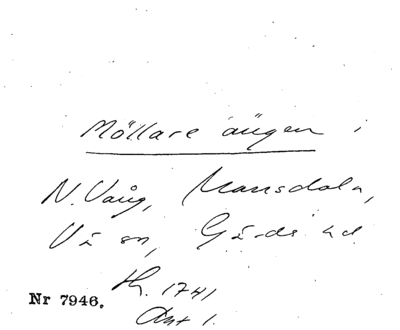 Möllare ängen i
N. Vång, Mansdala,
Vä sn, Gärds hd
H. 1741
Akt 1.
Nr 7946.